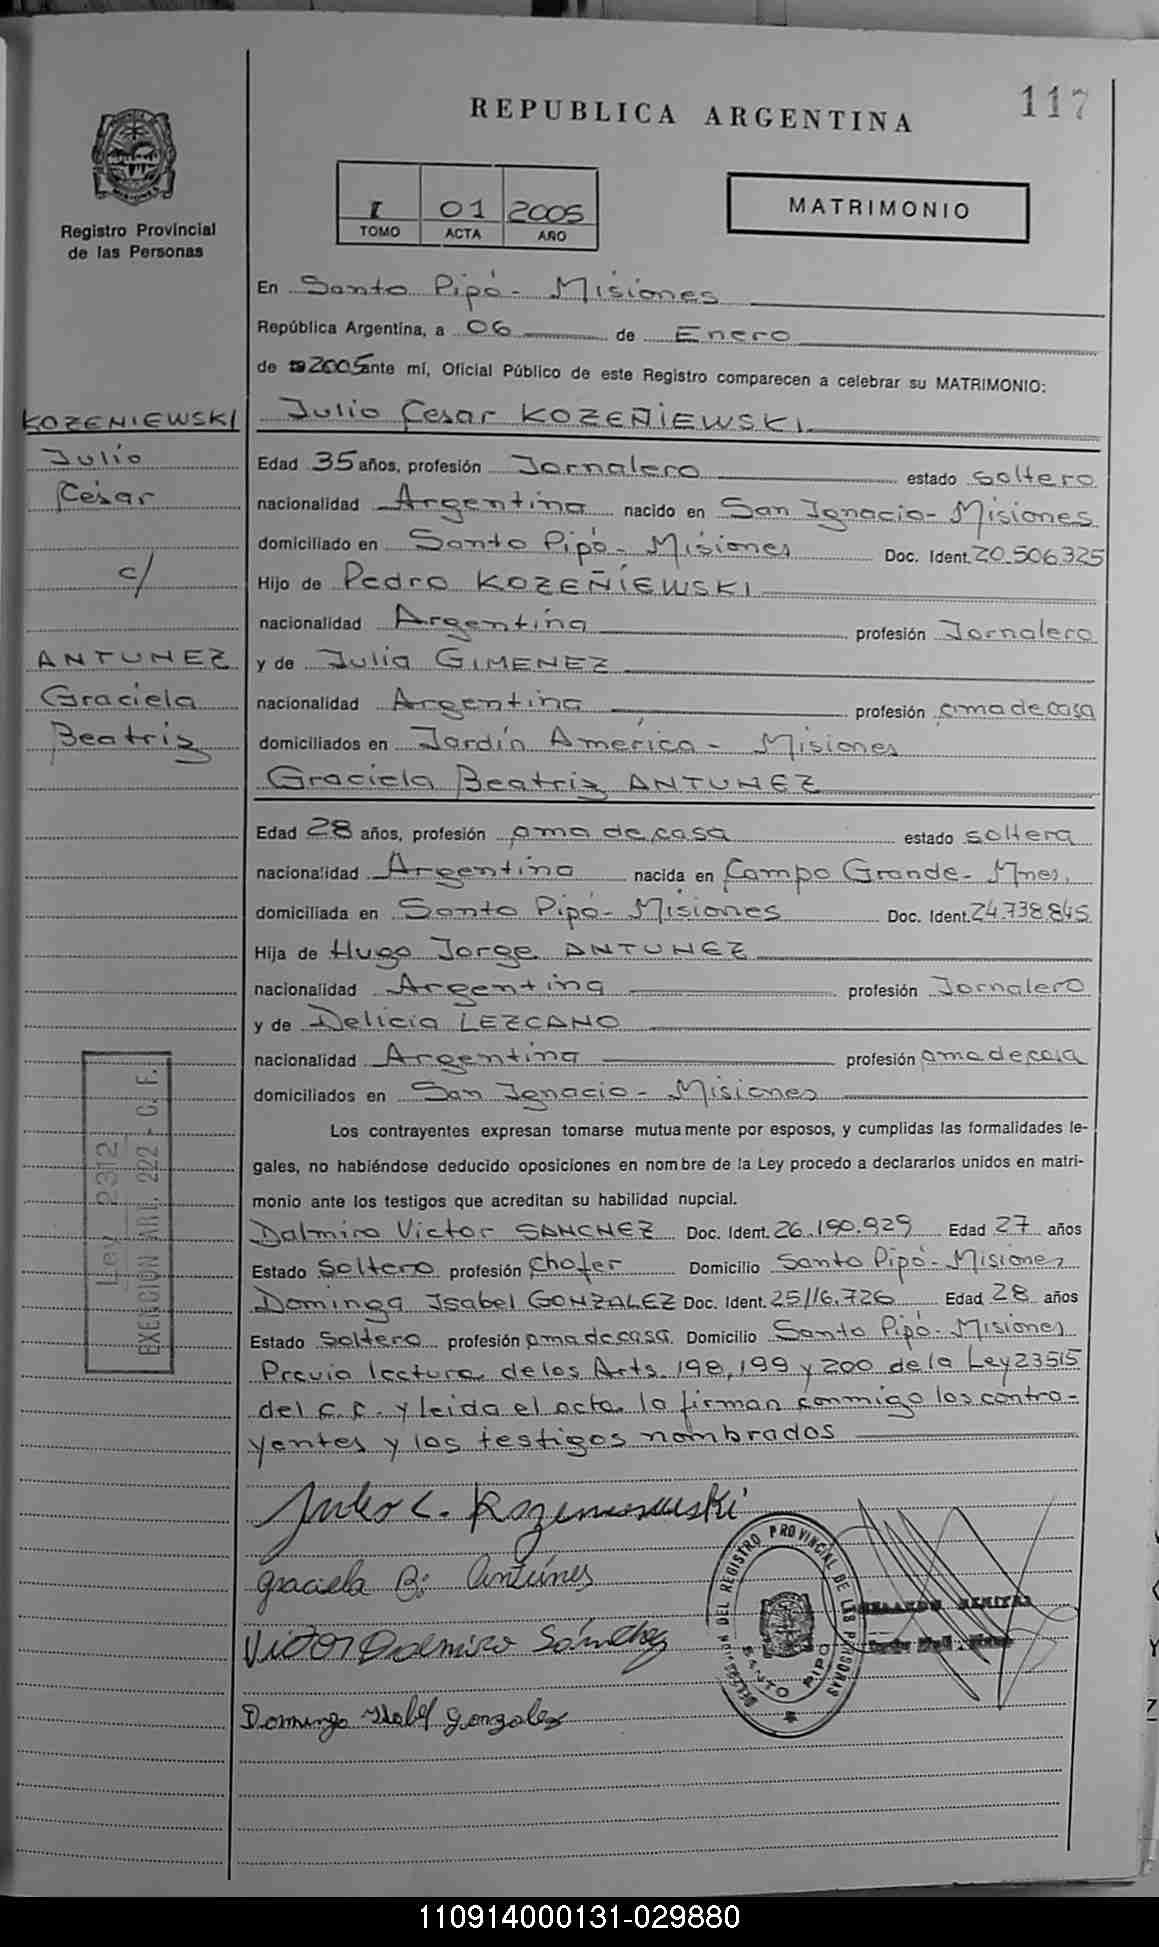 117
REPUBLICA ARGENTINA
MISIONES
Registro Provincial
de las Personas
I 01 2005
TOMO ACTA AÑO
MATRIMONIO
En Santo Pipó - Misiones
República Argentina, a 06 de Enero
de 2005 ante mí, Oficial Público de este Registro comparecen a celebrar su MATRIMONIO:
KOZENIEWSKI
Julio
César
c/
ANTUNEZ
Graciela
Beatriz
Julio Cesar KOZEÑIEWSKI
Edad 35 años, profesión Jornalero estado soltero
nacionalidad Argentina nacido en San Ignacio - Misiones
domiciliado en Santo Pipó - Misiones Doc. Ident. 20.506.325
Hijo de Pedro KOZEÑIEWSKI
nacionalidad Argentina profesión Jornalero
y de Julia GIMENEZ
nacionalidad Argentina profesión ama de casa
domiciliados en Jardín América - Misiones
Graciela Beatriz ANTUNEZ
Edad 28 años, profesión ama de casa estado soltera
nacionalidad Argentina nacida en Campo Grande - Mnes.
domiciliada en Santo Pipó - Misiones Doc. Ident. 24.738.845
Hija de Hugo Jorge ANTUNEZ
nacionalidad Argentina profesión Jornalero
y de Delicia LEZCANO
nacionalidad Argentina profesión ama de casa
domiciliados en San Ignacio - Misiones
Los contrayentes expresan tomarse mutuamente por esposos, y cumplidas las formalidades le-
gales, no habiéndose deducido oposiciones en nombre de la Ley procedo a declararlos unidos en matri-
monio ante los testigos que acreditan su habilidad nupcial.
Dalmiro Victor SANCHEZ Doc. Ident. 26.190.929 Edad 27 años
Estado Soltero profesión chofer Domicilio Santo Pipó - Misiones
Dominga Isabel GONZALEZ Doc. Ident. 25116.726 Edad 28 años
Estado Soltero profesión ama de casa. Domicilio Santo Pipó - Misiones
Previa lectura de los Arts. 198, 199 y 200 de la Ley 23515
del C.C. y leida el acta, la firman conmigo los contra-
yentes y los testigos nombrados
Ley 2312
EXENCION ART. 222 - C. F.
Julio C. Kozeniewski
Graciela B. Antúnes
Victor Dalmiro Sánchez
Dominga Isabel Gonzalez
DEL REGISTRO PROVINCIAL DE LAS PERSONAS
SANTO PIPO
110914000131-029880